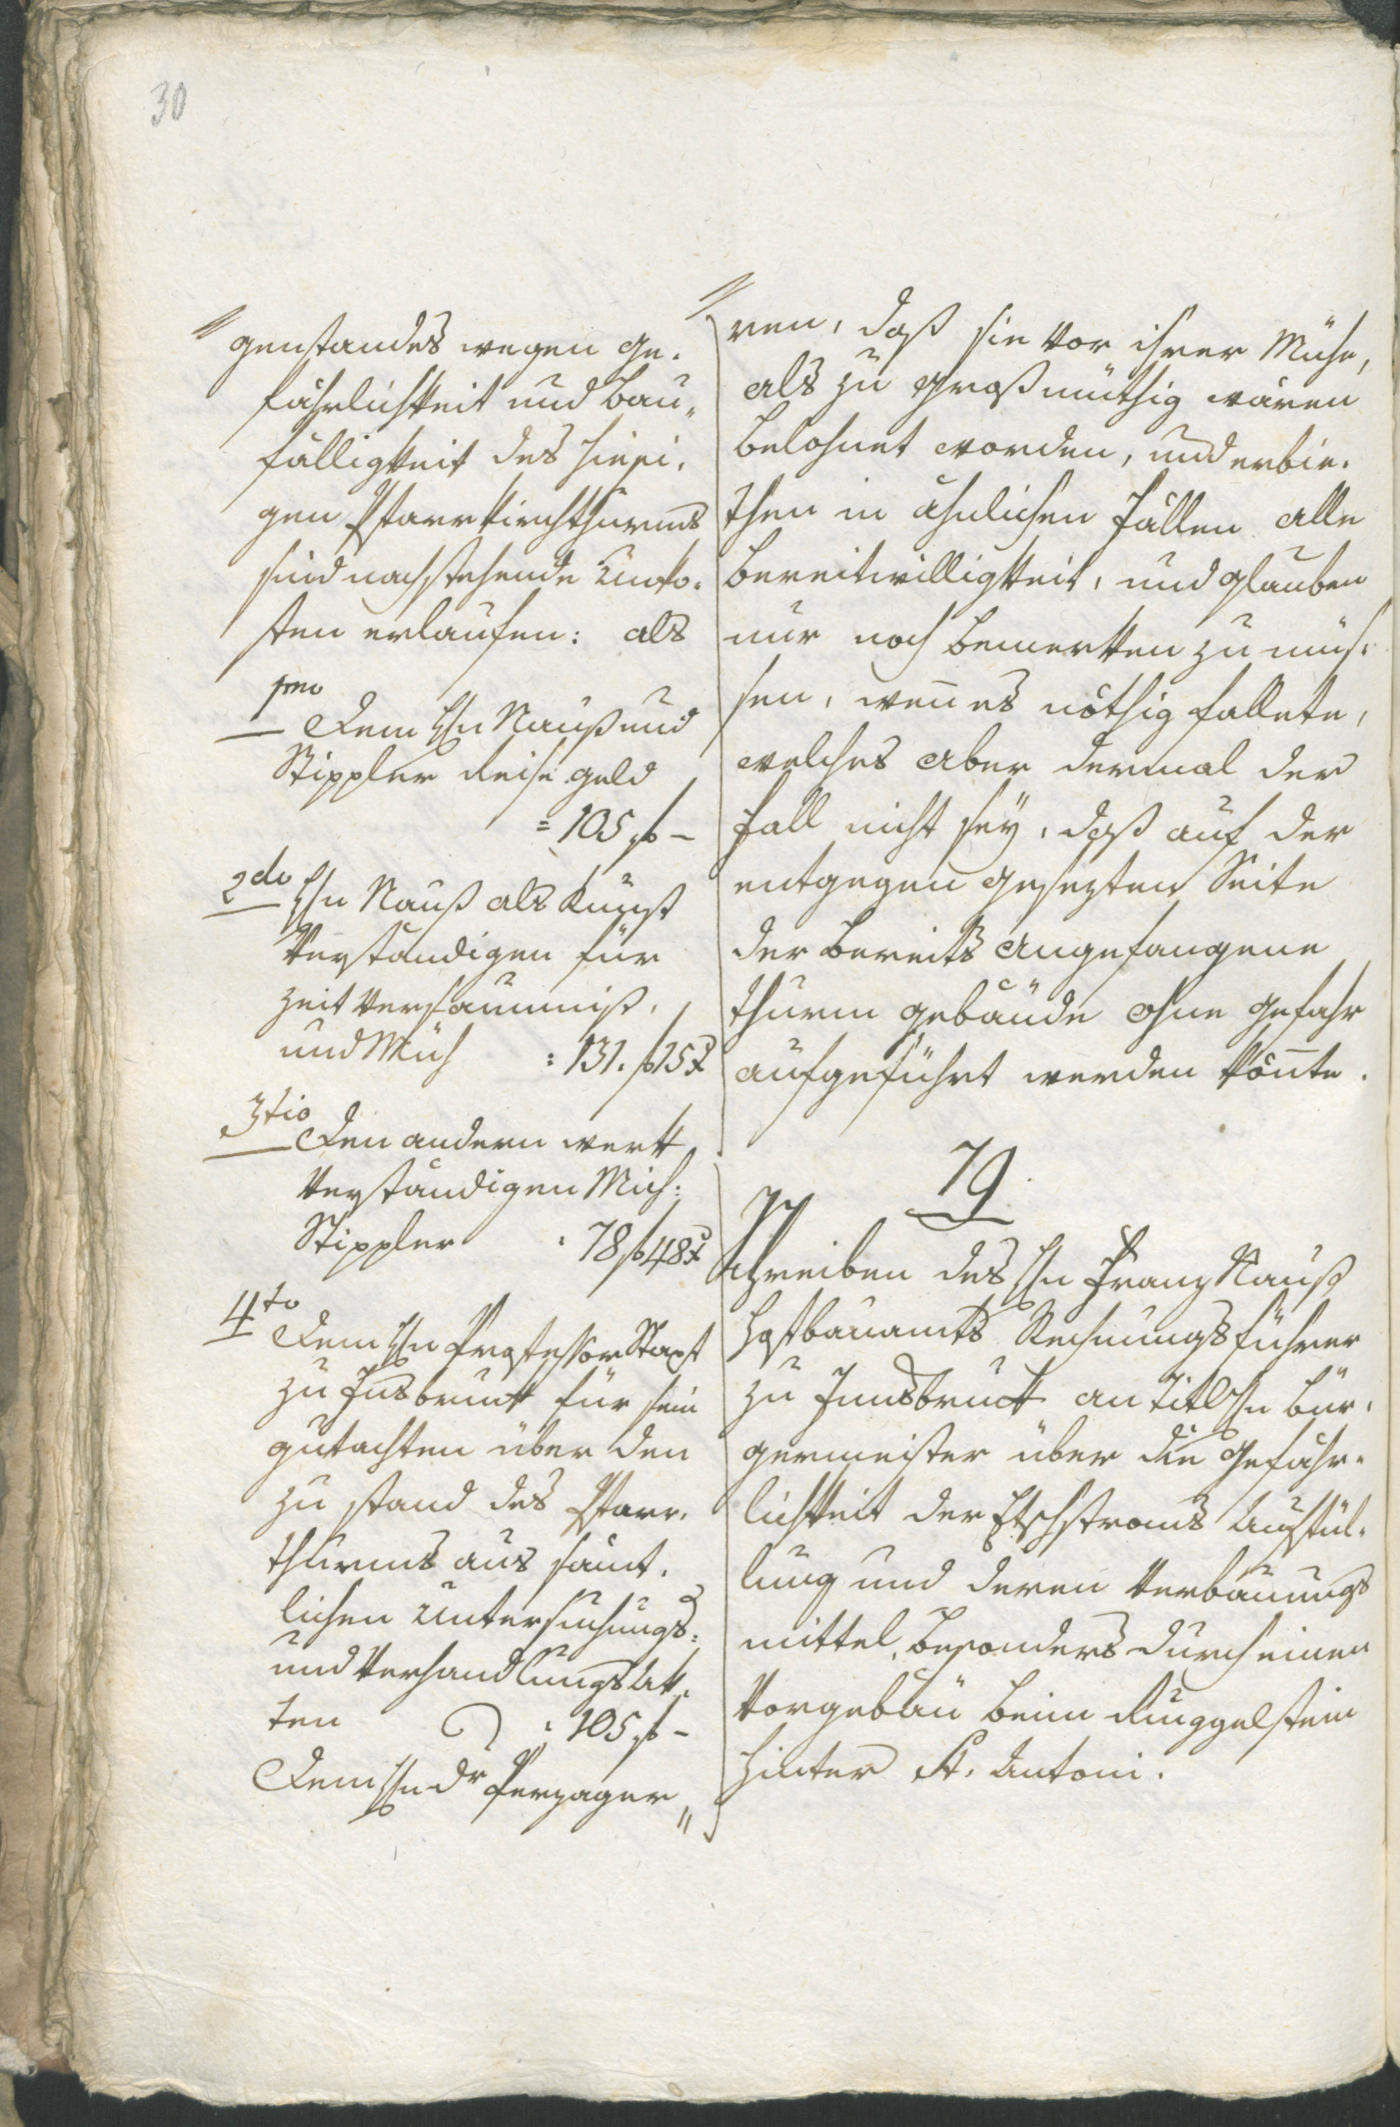 30
genstandes wegen ge-
fährlichkeit und Bau„
fälligkeit des hiesi-
gen Pfarrkirchthurms
sind nachstehende Unko-
sten erlaufen: als
1mo
Dem Hn Nauß und
Stippler Reise geld
= 105 f –
2do Hn Nauß als Kunst
Verständigen für
Zeit Versäumniß,
und Müh : 131. f 15 x
3tio Den andern werk
Verständigen Mich:
Stippler : 78 f 48 x
4to
Dem Hn Professor Stapf
zu Insbruck für sein
gutachten über den
zu stand des Pfarr-
thurms aus sämt-
lichen Untersuchungs-
und Verhandlungs Ak-
ten : 105 f –
Dem Hn Dr Perzager „
ren, daß sie vor ihrer Mühe,
als zu großmüthig wären
belohnet worden, und erbie-
then in ähnlichen Fällen alle
Bereitwilligkeit, und glauben
nur noch bemerken zu müs-
sen, wen̅ es nöthig fallete,
welches aber dermal der
Fall nicht seÿ, daß auf der
entgegen gesezten Seite
der bereits angefangene
thurm gebäude ohne gefahr
aufgeführt werden kön̅te.
79
Schreiben des Hn Franz Nauß
Hofbauamts Rechnungsführer
zu Innsbruck an Titl Hn Bür-
germeister über die Gefähr-
lichkeit der Etschstroms Ausfül-
lung und deren Verbauungs
mittel, besonders durch einen
Vorgebäu beim Runggelstein
hinter St. Antoni.